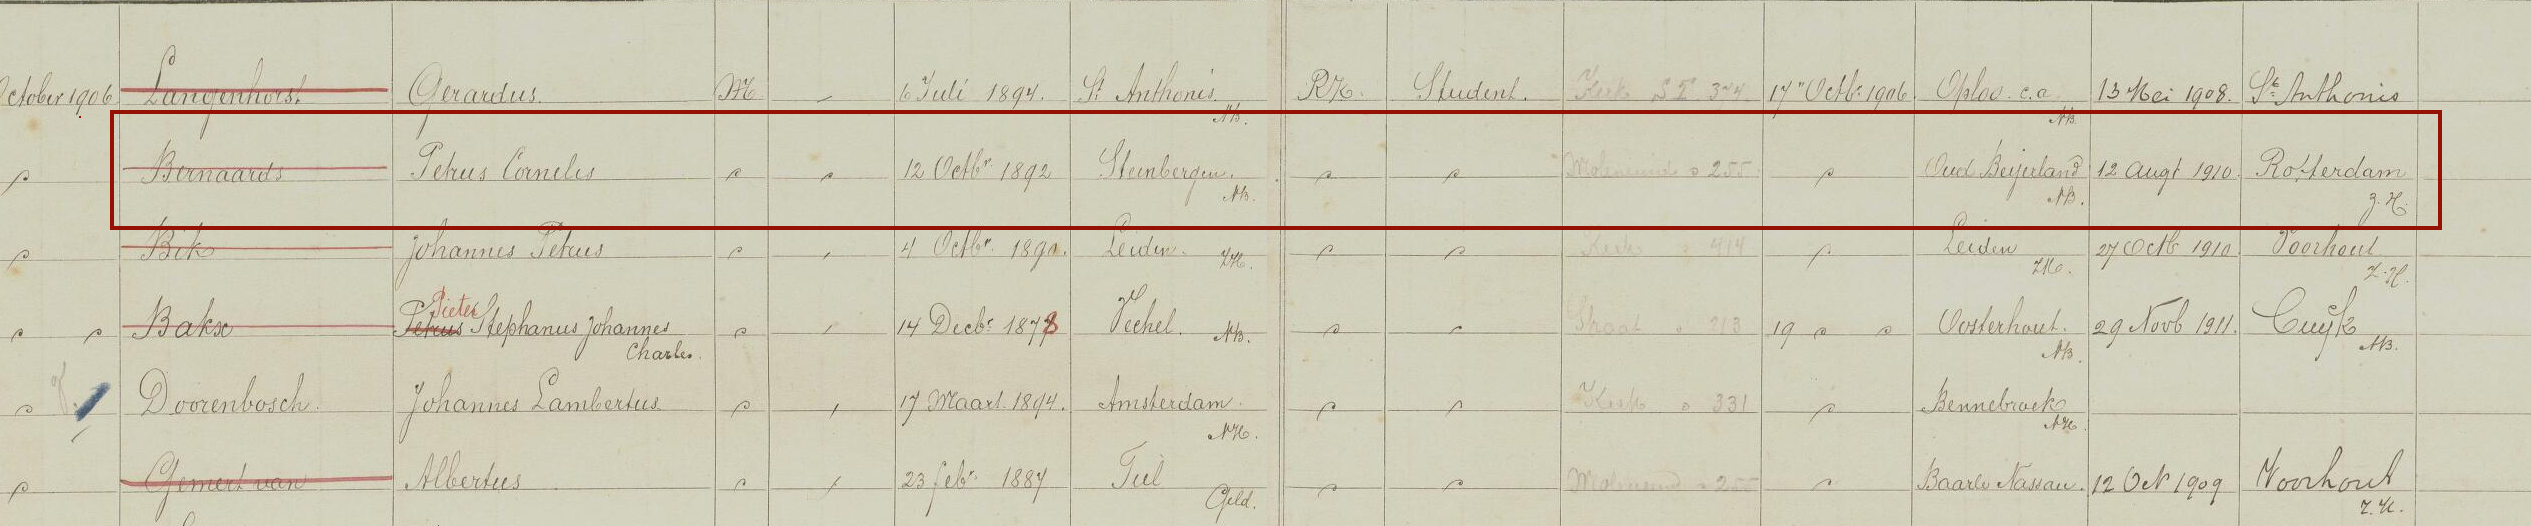 October 1906 Langenhorst Gerardus. M 6 Juli 1894. St Anthonis. NB. RK. Student. Kerk 374 17 Octb. 1906. Oploo c.a. NB. 13 Mei 1908. St. Anthonis
" Bernaards Petrus Cornelis " " 12 Octbr. 1892 Steenbergen. NB. " " Moleneind " 255 " Oud Beijerland NB. 12 Augt 1910 Rotterdam Z.H.
" Bik Johannes Petrus " 4 Octbr. 1890. Leiden. ZH. " " Kerk " 414 " Leiden ZH. 27 Octb 1910 Voorhout Z.H.
Pieter
" " Bakx Petrus Stephanus Johannes " 14 Decbr. 1878 Vechel. NB. " " Straat " 213 19 " " Oosterhout. NB. 29 Novb 1911. Cuijk NB.
Charles.
" Doorenbosch. Johannes Lambertus " 17 Maart 1894. Amsterdam. NH. " " Kerk " 331 " Bennebroek NH.
" Gemert van Albertus " 23 febr. 1887 Tiel Geld. " " Moleneind " 255 " Baarle Nassau. 12 Oct 1909 Voorhout Z.H.